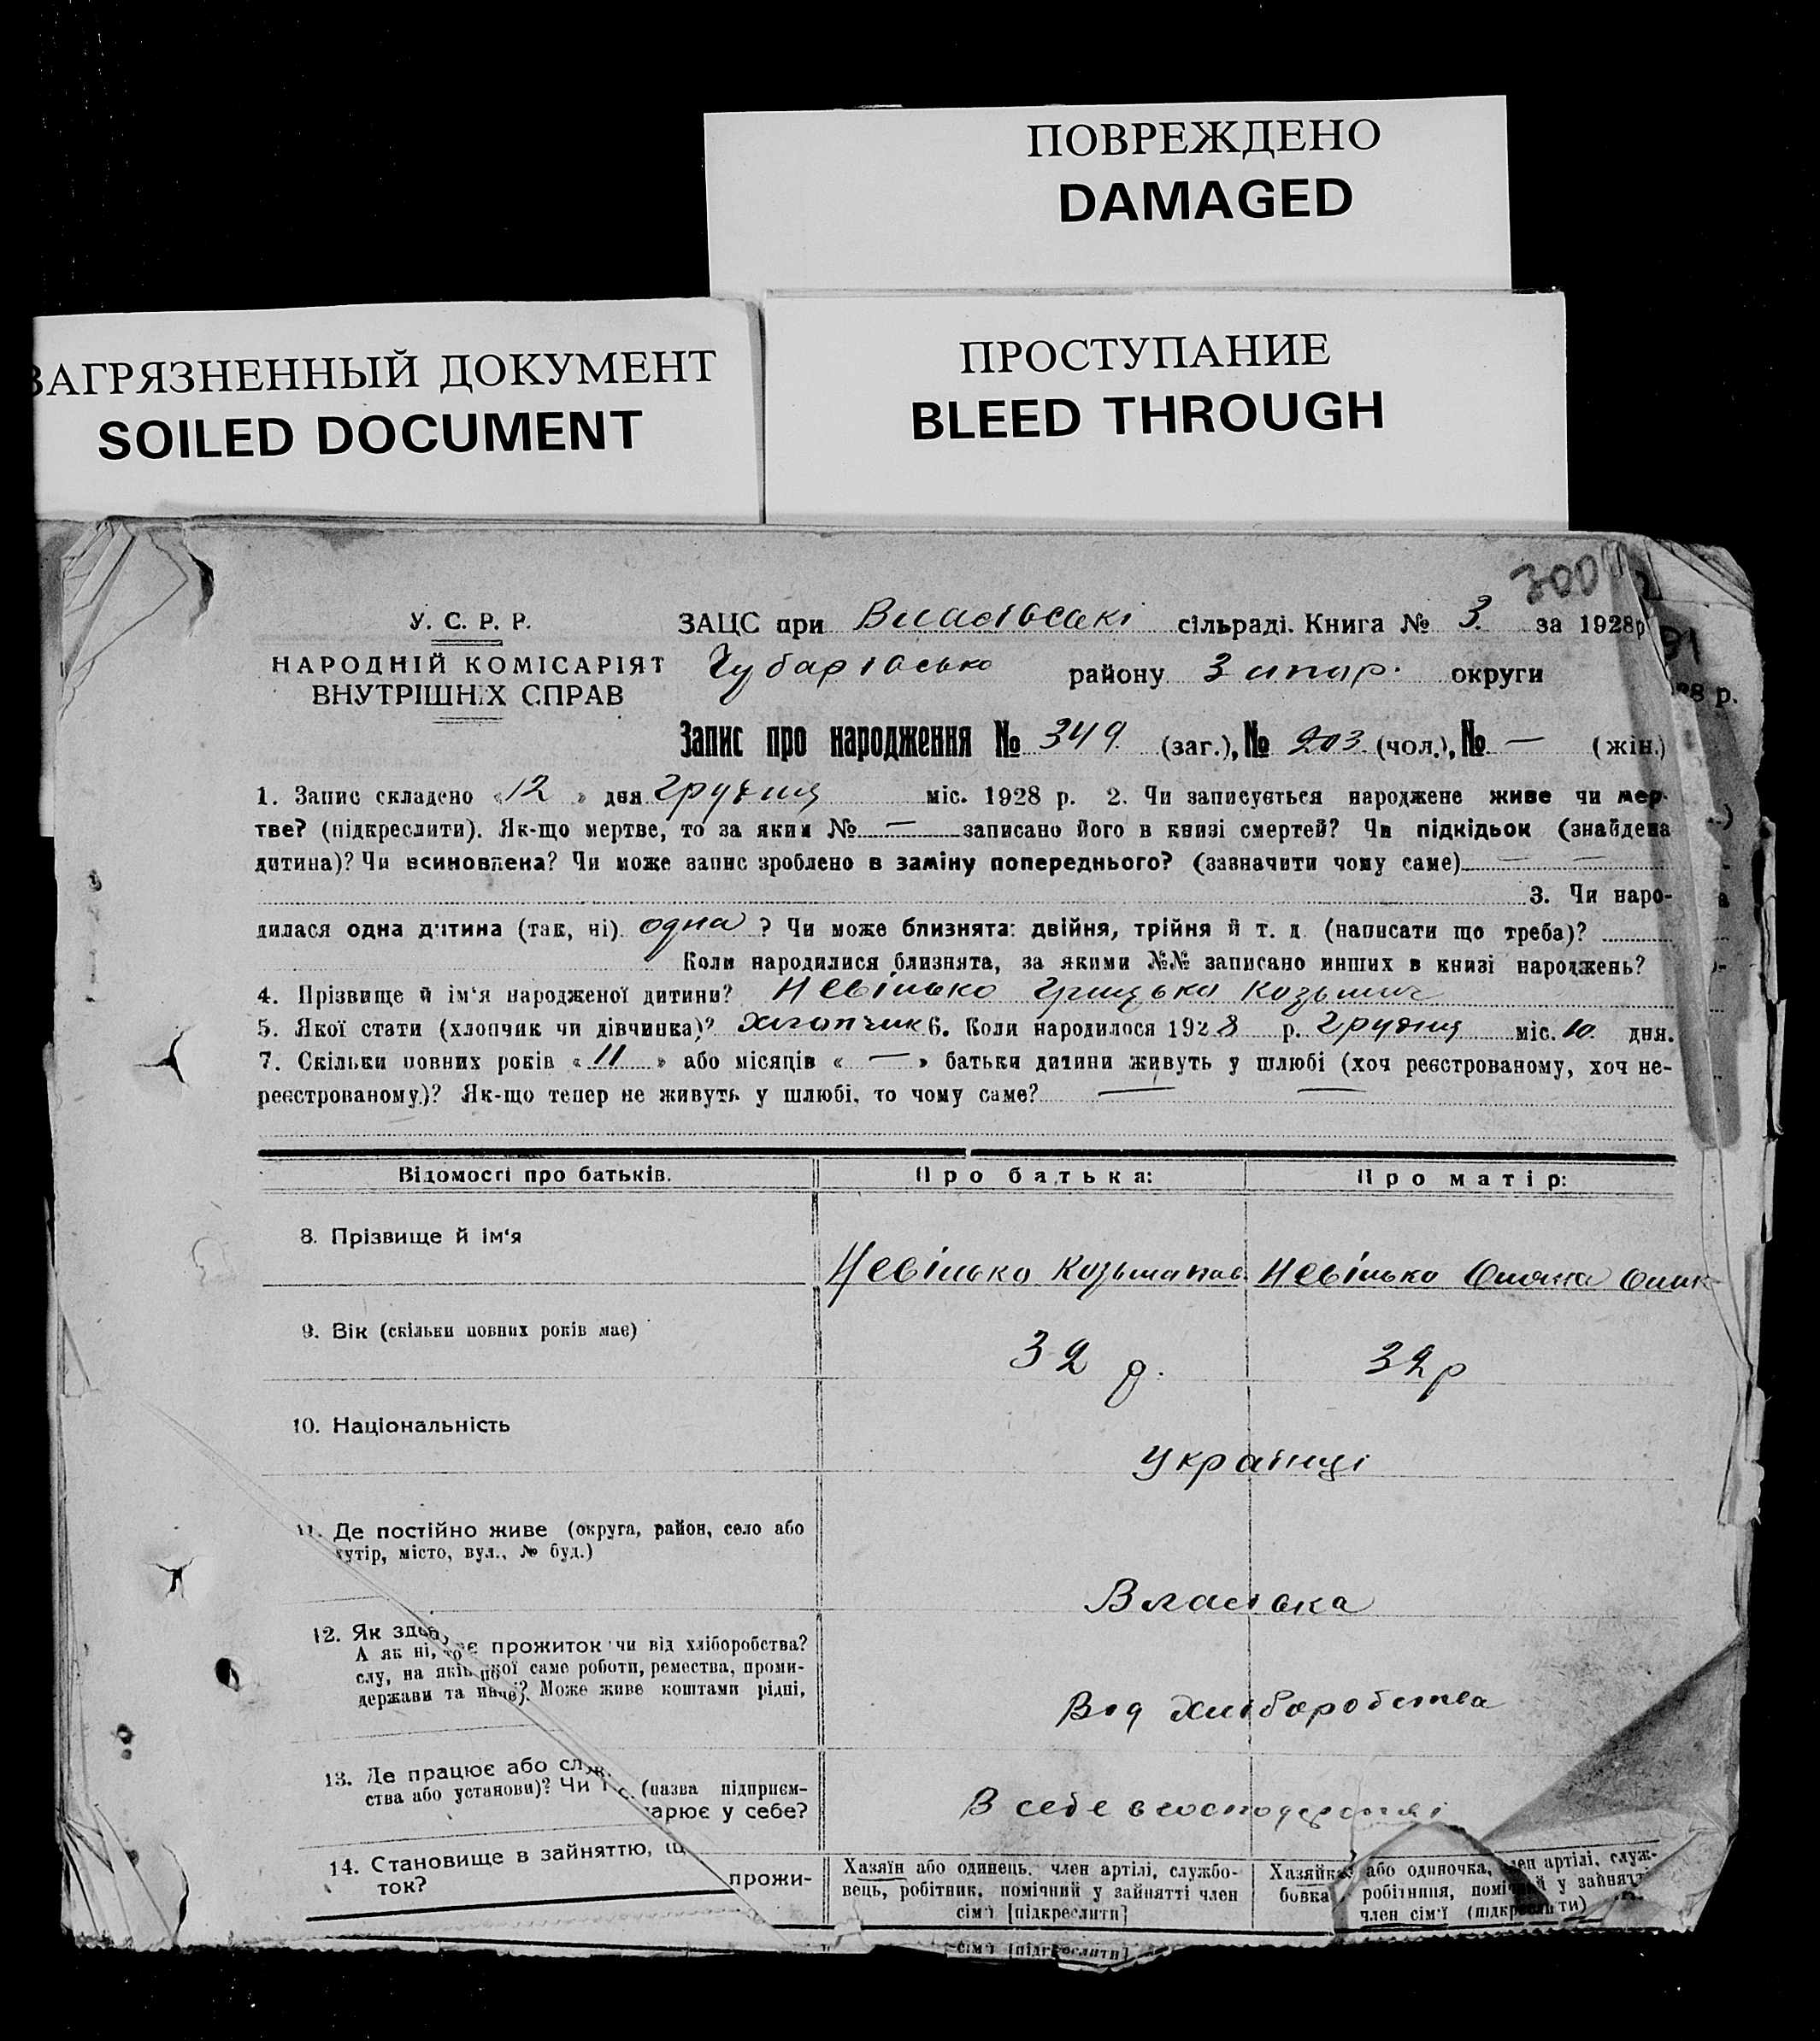 ПОВРЕЖДЕНО
DAMAGED
ЗАГРЯЗНЕННЫЙ ДОКУМЕНТ
SOILED DOCUMENT
ПРОСТУПАНИЕ
BLEED THROUGH
300
У. С. Р. Р.
НАРОДНІЙ КОМІСАРІЯТ
ВНУТРІШНІХ СПРАВ
ЗАЦС при Власівські сільраді. Книга № 3. за 1928р
Чубарівсько району Запор. округи
Запис про народження № 349 (заг.), № 203 (чол.), № — (жін.)
1. Запис складено «12» дня Грудня міс. 1928 р. 2. Чи записується народжене живе чи мер-
тве? (підкреслити). Як-що мертве, то за яким № — записано його в книзі смертей? Чи підкідьок (знайдена
дитина)? Чи всиновлена? Чи може запис зроблено в заміну попереднього? (зазначити чому саме) — —
3. Чи наро-
дилася одна дитина (так, ні) одна ? Чи може близнята: двійня, трійня й т. д. (написати що треба)?
Коли народилися близнята, за якими №№ записано инших в книзі народжень?
4. Прізвище й ім'я народженої дитини? Невілько Грицько Козьмич
5. Якої стати (хлопчик чи дівчинка)? Хлопчик 6. Коли народилося 1928 р. Грудня міс. 10 дня.
7. Скільки повних років «11» або місяців «—» батьки дитини живуть у шлюбі (хоч реєстрованому, хоч не-
реєстрованому)? Як-що тепер не живуть у шлюбі, то чому саме? — —
Відомості про батьків. Про батька: Про матір:
8. Прізвище й ім'я
Невілько Козьма Пав. Невілько Оляна
9. Вік (скільки повних років має)
32 р. 32 р
10. Національність
Українці
11. Де постійно живе (округа, район, село або
хутір, місто, вул., № буд.)
Власівка
12. Як здоб
прожиток чи від хліборобства?
А як ні, то
якої саме роботи, ремества, проми-
слу, на які
держави та инше)? Може живе коштами рідні,
Від Хліборобства
13. Де працює або служ. (назва підприєм-
ства або установи)? Чи
В себе в господарстві
14. Становище в зайняттю, щ прожи-
ток?
Хазяїн або одинець, член артілі, службо-
вець, робітник, помічний у зайнятті член
сім'ї [підкреслити]
Хазяйка або одиночка, член артілі, служ-
бовка, робітниця, помічний у зайнятт
член сім'ї (підкреслити)
сім'ї [підкреслити]